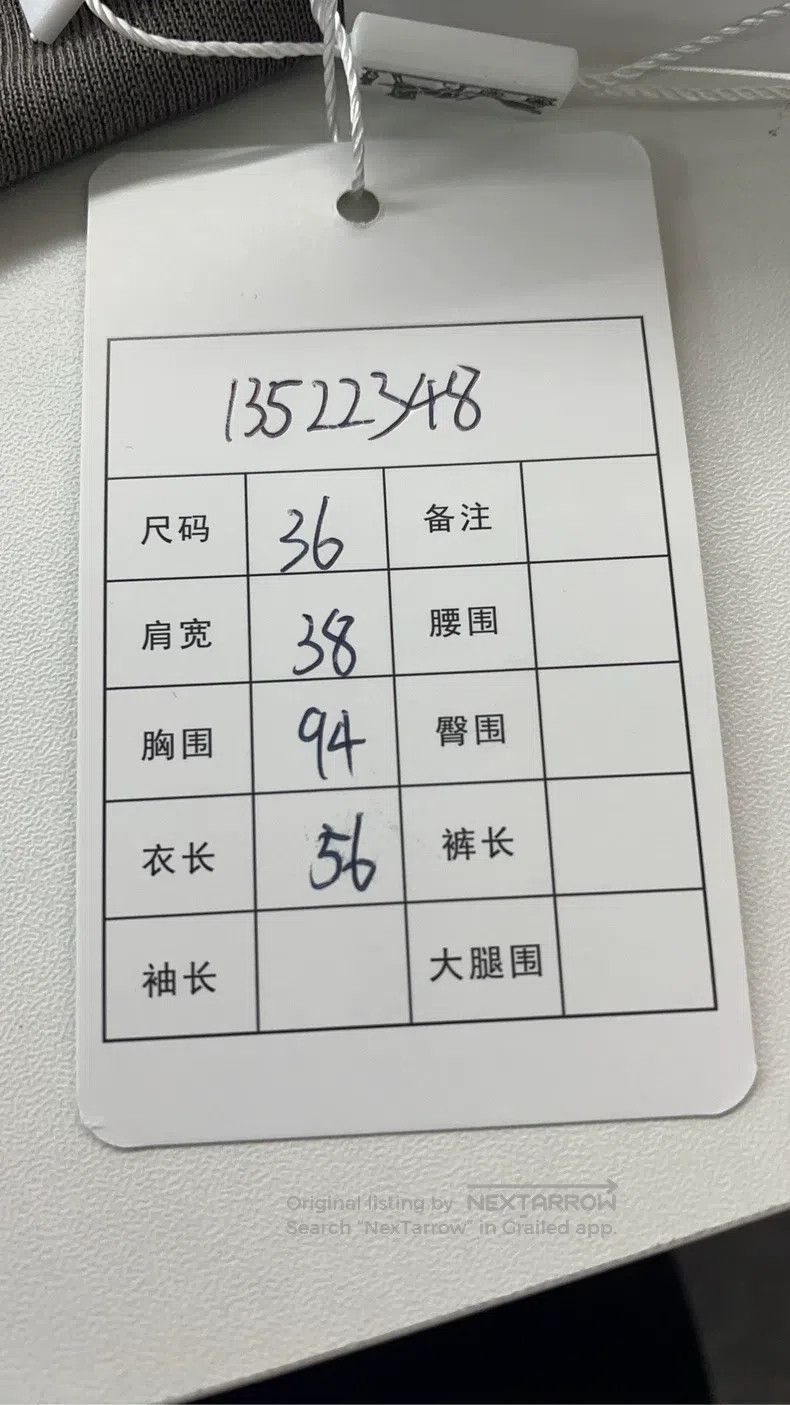 13522348
尺码 36 备注
肩宽 38 腰围
胸围 94 臀围
衣长 56 裤长
袖长 大腿围
Original listing by NEXTARROW
Search "NexTarrow" in Grailed app.